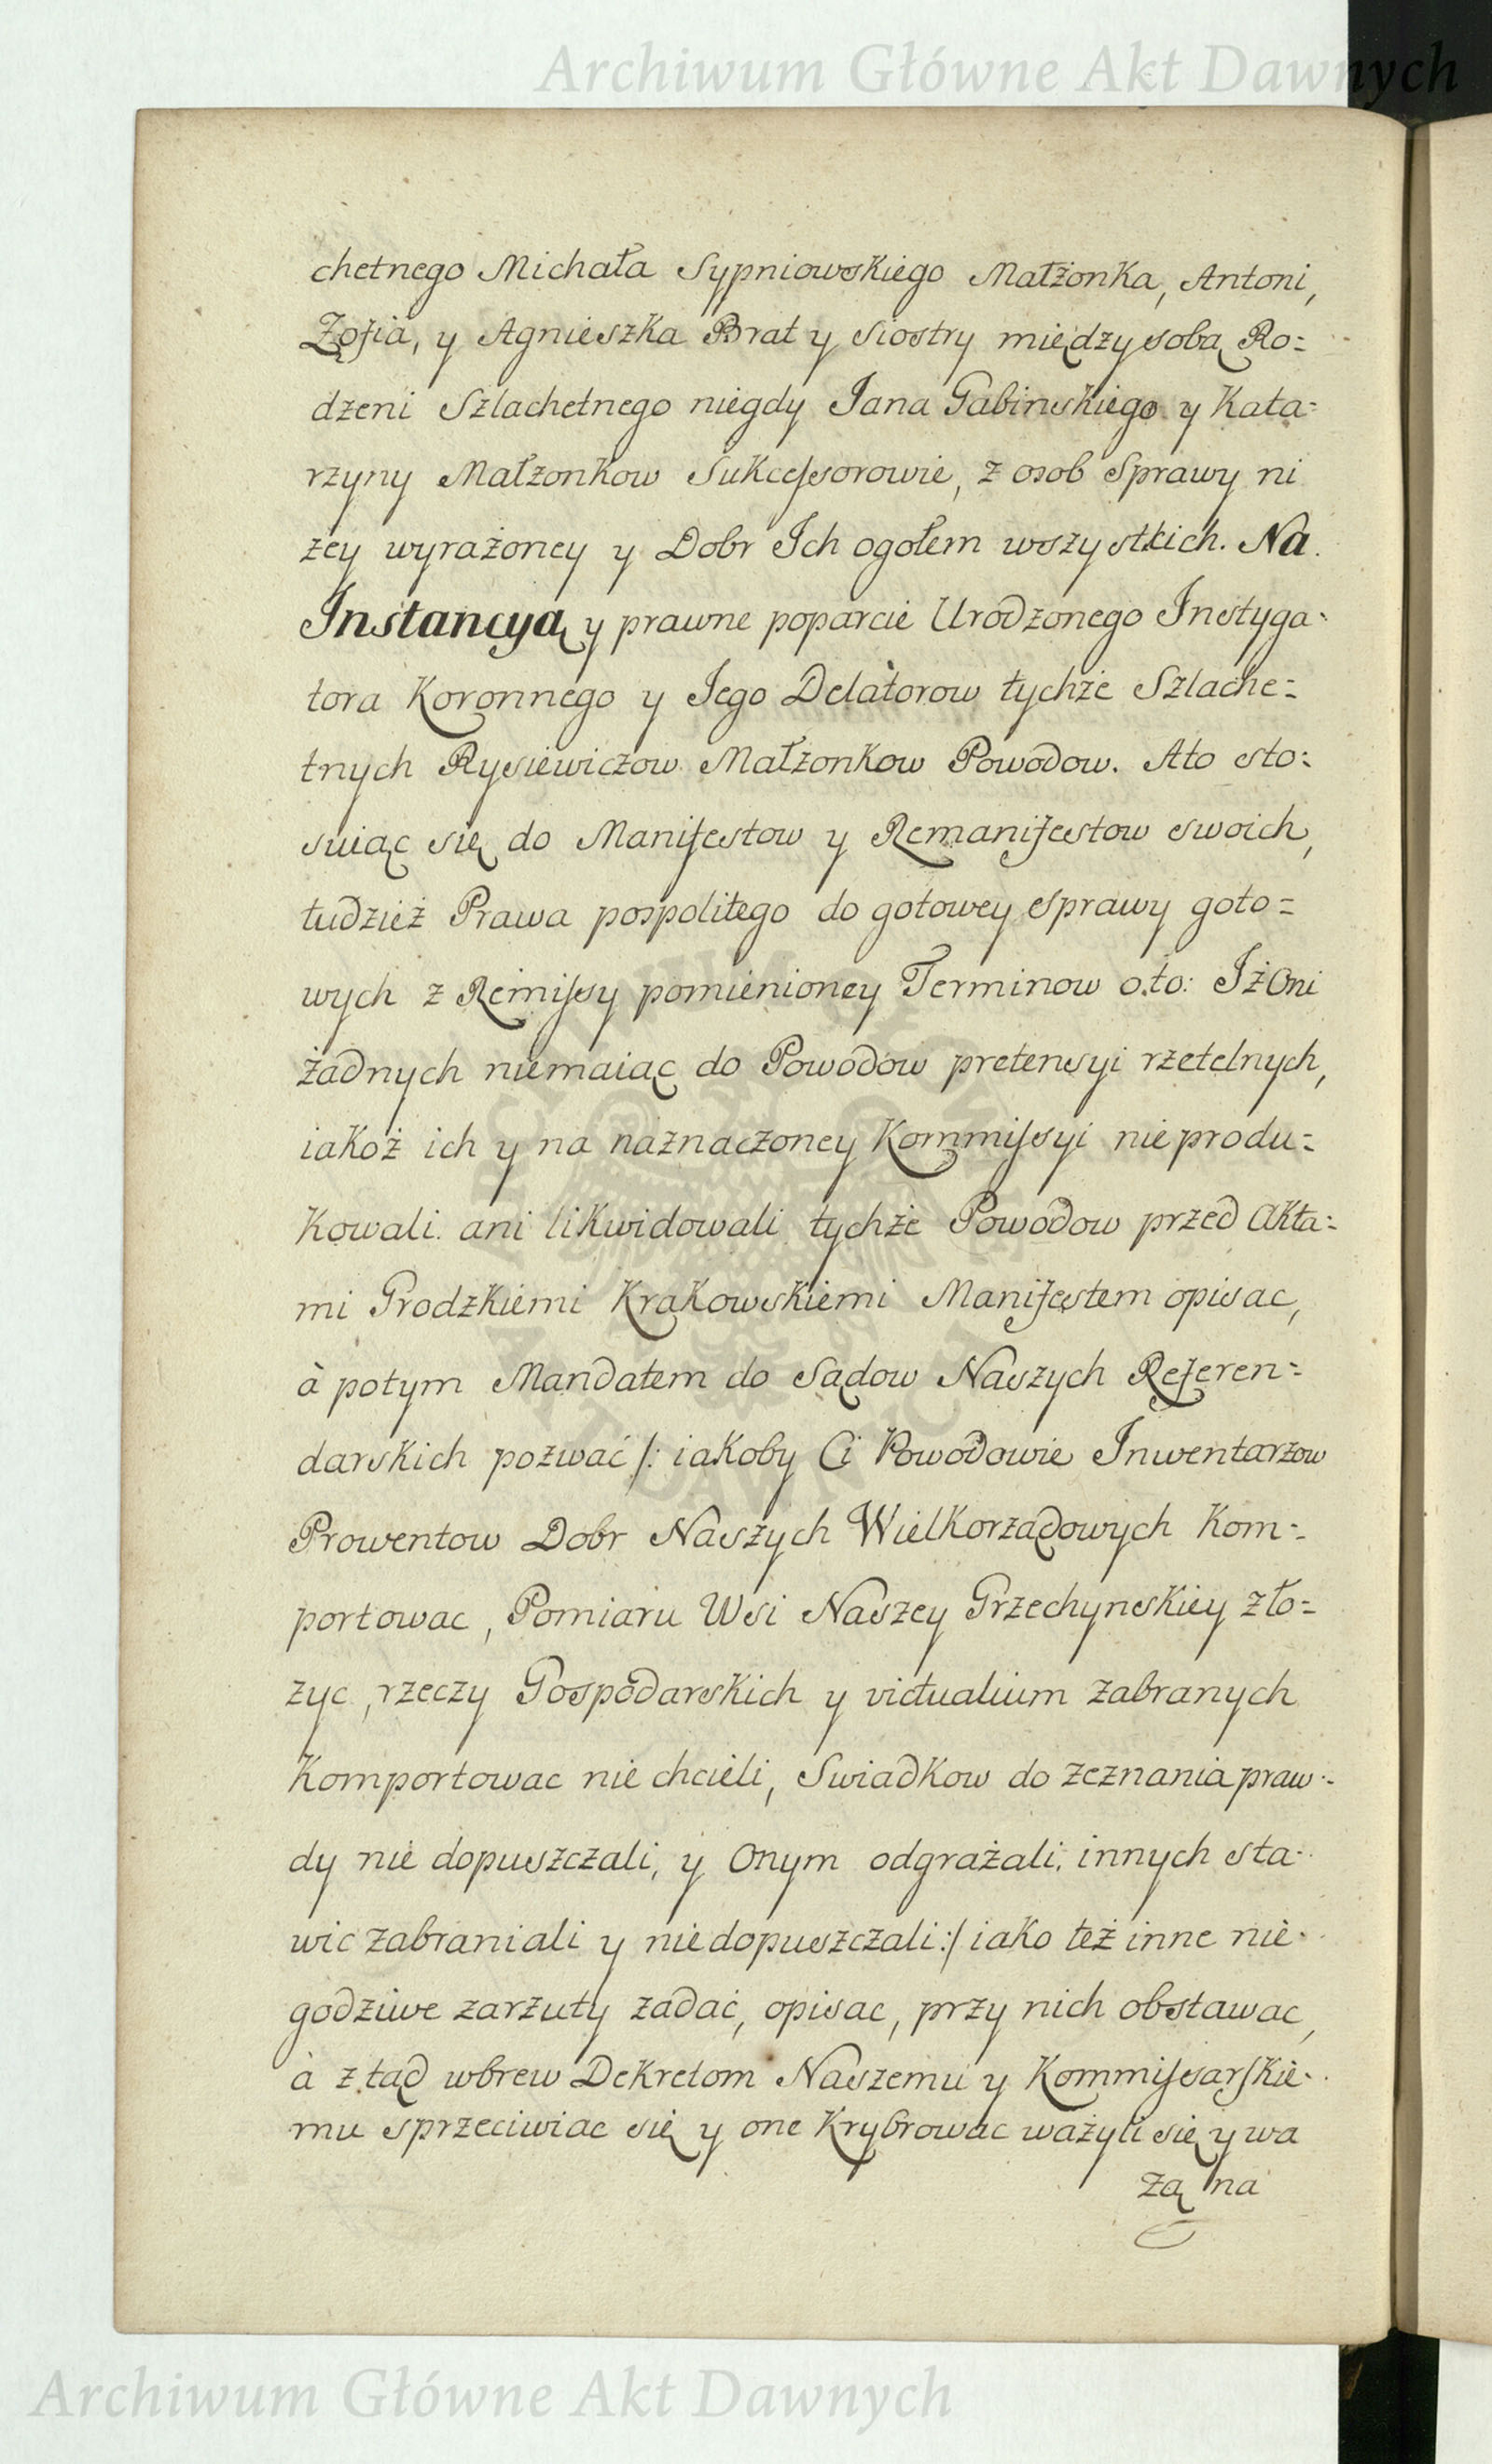 Archiwum Główne Akt Dawnych
chetnego Michała Sypniowskiego Małżonka, Antoni,
Zofia, y Agnieszka Brat y Siostry między sobą Ro=
dzeni Szlachetnego niegdy Jana Gabinskiego y Kata=
rzyny Małzonkow Sukcessorowie, z osob Sprawy ni
zey wyrażoney y Dobr Ich ogołem wszystkich. Na
Instancyą y prawne poparcie Urodzonego Instyga=
tora Koronnego y Jego Delatorow tychże Szlache=
tnych Rysiewiczow Małzonkow Powodow. Ato sto=
suiąc się do Manifestow y Remanifestow swoich,
tudzież Prawa pospolitego do gotowey sprawy goto=
wych z Remissy pomienioney Terminow o to: Iż Oni
żadnych niemaiąc do Powodow pretensyi rzetelnych,
iakoż ich y na naznaczoney Kommissyi nie produ=
kowali ani likwidowali tychże Powodow przed Akta=
mi Grodzkiemi Krakowskiemi Manifestem opisac,
à potym Mandatem do Sądow Naszych Referen=
darskich pozwać /: iakoby Ci Powodowie Inwentarzow
Prowentow Dobr Naszych Wielkorządowych Kom=
portowac, Pomiaru Wsi Naszey Grzechynskiey zło=
zyc, rzeczy Gospodarskich y victualium zabranych
Komportowac nie chcieli, Swiadkow do zeznania praw=
dy nie dopuszczali, y Onym odgrażali, innych sta=
wic zabraniali y niedopuszczali :/ iako też inne nie=
godziwe zarzuty zadać, opisac, przy nich obstawac,
à z tąd wbrew Dekretom Naszemu y Kommissarskie=
mu sprzeciwiac się y one Krybrowac ważyli się y wa
żą na
Archiwum Główne Akt Dawnych